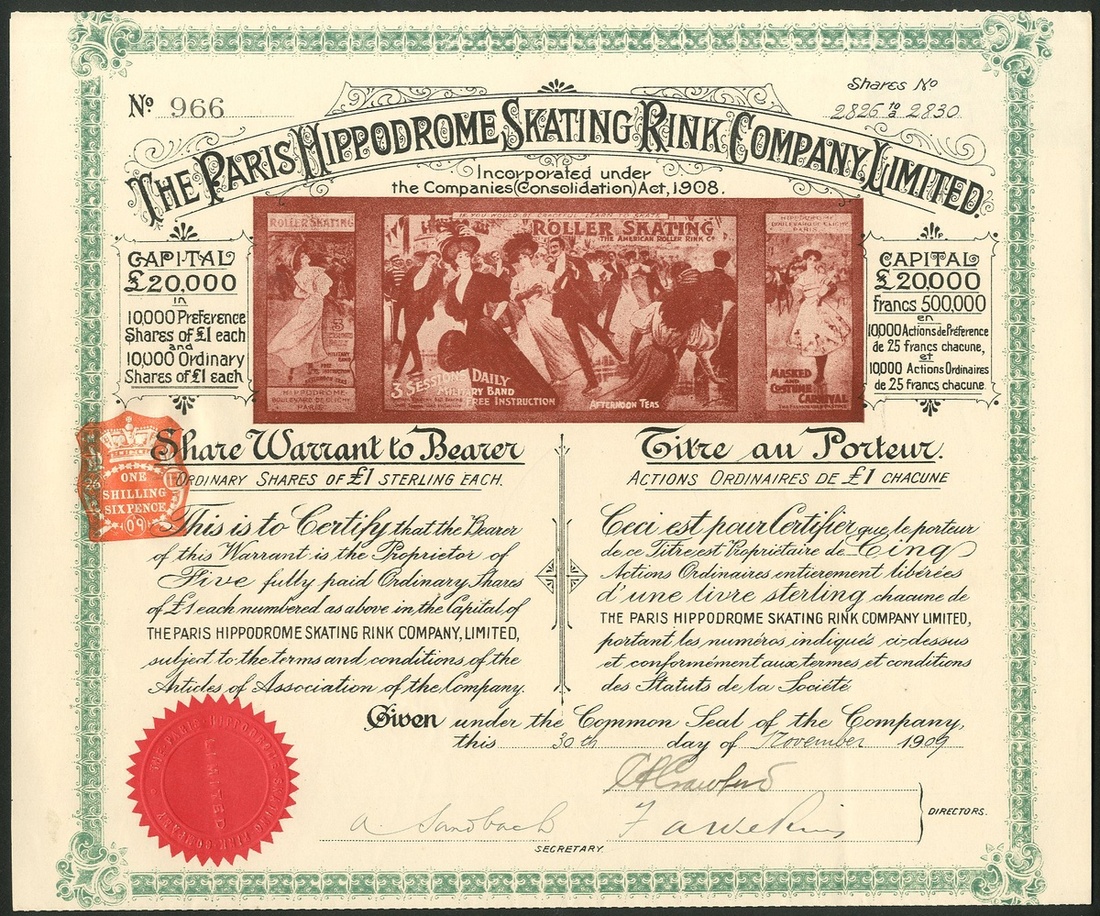 No 966
Shares No
2826 to 2830
THE PARIS HIPPODROME SKATING RINK COMPANY, LIMITED.
Incorporated under
the Companies (Consolidation) Act, 1908.
CAPITAL
£20,000
in
10,000 Preference
Shares of £1 each
and
10,000 Ordinary
Shares of £1 each
ROLLER SKATING
MILITARY BAND
AFTERNOON TEAS
HIPPODROME
BOULEVARD DE CLICHY
PARIS
IF YOU WOULD BE GRACEFUL LEARN TO SKATE
ROLLER SKATING
THE AMERICAN ROLLER RINK Co
3 SESSIONS DAILY
MILITARY BAND
FREE INSTRUCTION
AFTERNOON TEAS
HIPPODROME
BOULEVARD DE CLICHY
PARIS
MASKED
AND
COSTUME
CARNIVAL
CAPITAL
£20,000
francs 500,000
en
10,000 Actions de Préference
de 25 francs chacune,
et
10,000 Actions Ordinaires
de 25 francs chacune
ONE
SHILLING
SIXPENCE
09
Share Warrant to Bearer
ORDINARY SHARES OF £1 STERLING EACH.
This is to Certify that the Bearer
of this Warrant is the Proprietor of
Five fully paid Ordinary Shares
of £1 each numbered as above in the Capital of
THE PARIS HIPPODROME SKATING RINK COMPANY, LIMITED,
subject to the terms and conditions of the
Articles of Association of the Company.
Titre au Porteur.
ACTIONS ORDINAIRES DE £1 CHACUNE
Ceci est pour Certifier que le porteur
de ce Titre est Propriétaire de Cinq
Actions Ordinaires entierement libérées
d'une livre sterling chacune de
THE PARIS HIPPODROME SKATING RINK COMPANY LIMITED,
portant les numéros indiqués ci-dessus
et conformément aux termes et conditions
des Statuts de la Société
Given under the Common Seal of the Company,
this 30th day of November 1909
THE PARIS HIPPODROME SKATING RINK COMPANY
LIMITED
Crawford
A. Sandbach
DIRECTORS.
SECRETARY.